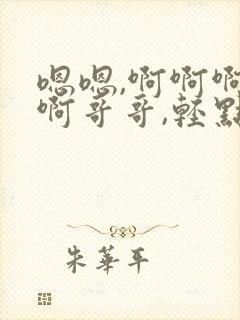 嗯嗯,啊啊啊
啊哥哥,輕點
朱華平